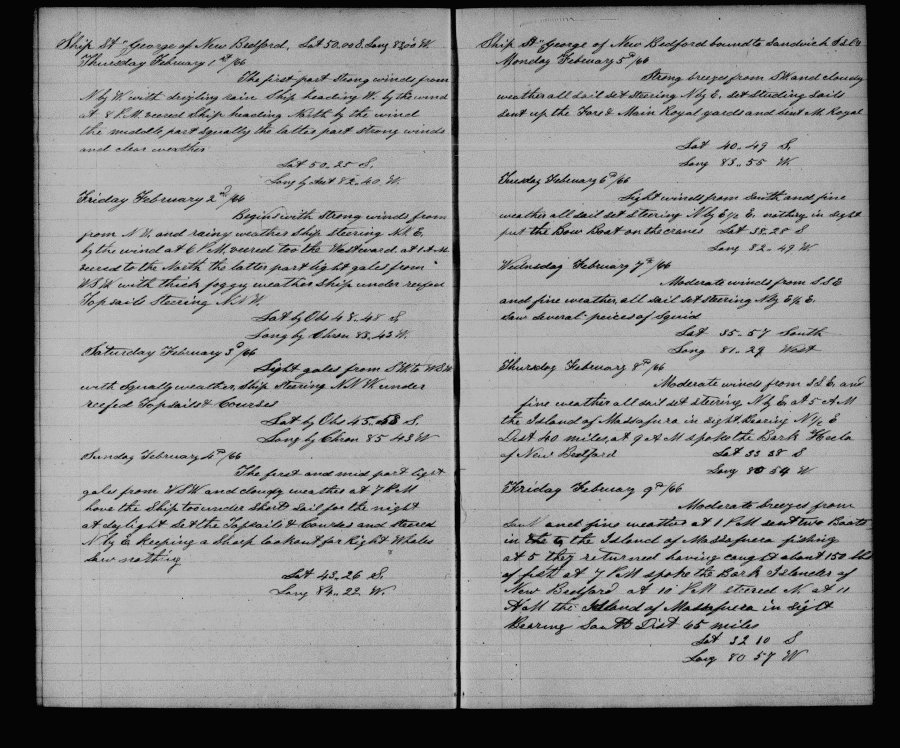 Ship St George of New Bedford, Lat 50.00 S. Long 83.00 W
Thursday February 1st/66
The first part strong winds from
N by W. with drizling rain Ship heading W. by the wind
at 8 P.M. veered Ship heading North by the wind
the middle part squally the latter part strong winds
and clear weather
Lat 50..25 S.
Long by Act 82..40. W.
Friday February 2d/66
Begins with strong winds from
from N.W. and rainy weather Ship steering N.E.
by the wind at 6 P.M. veered too the Westward. at 1 A.M.
veered to the North the latter part light gales from
W.S.W. with thick foggy weather Ship under reefed
Topsails Steering N.N.W.
Lat by Obs 48..48 S
Long by Chron 83..43 W.
Saturday February 3d/66
Light gales from S.W. to W.S.W
with Squally weather, Ship Steering N.N.W under
reefed Topsails & Courses
Lat by Obs 45..58 S.
Long by Chron 85 43 W
Sunday February 4th/66
The first and mid part light
gales from W.S.W and cloudy weather at 7 P.M
hove the Ship too under Short Sail for the night
at daylight Set the Topsails & Courses and steered
N by E. keeping a sharp lookout for Right Whales
Saw nothing
Lat 43..26 S.
Long 84..22 W.
Ship St George of New Bedford bound to Sandwich Isl's
Monday February 5th/66
Strong breezes from SW and cloudy
weather all sail set steering N by E. set studing sails
sent up the Fore & Main Royal yards and bent M. Royal
Lat 40..49 S,
Long 83..55 W
Tuesday February 6th/66
Light winds from South and fine
weather all sail set steering N by E 1/2 E. nothing in sight
put the Bow Boat on the cranes Lat 38.25 S
Long 82..49 W
Wednsday February 7th/66
Moderate winds from S S E
and fine weather, all sail set steering N by E 1/2 E.
Saw several peices of Squid
Lat 35..57 South
Long 81..29 West
Thursday February 8th/66
Moderate winds from S.S.E. and
fine weather all sail set steering N by E at 5 A M
the Island of Massafura in sight, Bearing N 1/2 E
Dist 40 miles, at 9 A M spoke the Bark Hecla
of New Bedford Lat 33 38 S
Long 80 54 W
Friday February 9th/66
Moderate breezes from
and fine weather at 1 P.M sent two Boats
in to the Island of Massafuera fishing
at 5 they returned having caught about 150 lbs
of fish at 7 P.M spoke the Bark Islander of
New Bedford at 10 P.M steered N. at 11
A.M the Island of Massafuera in sight
Bearing South Dist 65 miles
Lat 32 10 S
Long 80 57 W